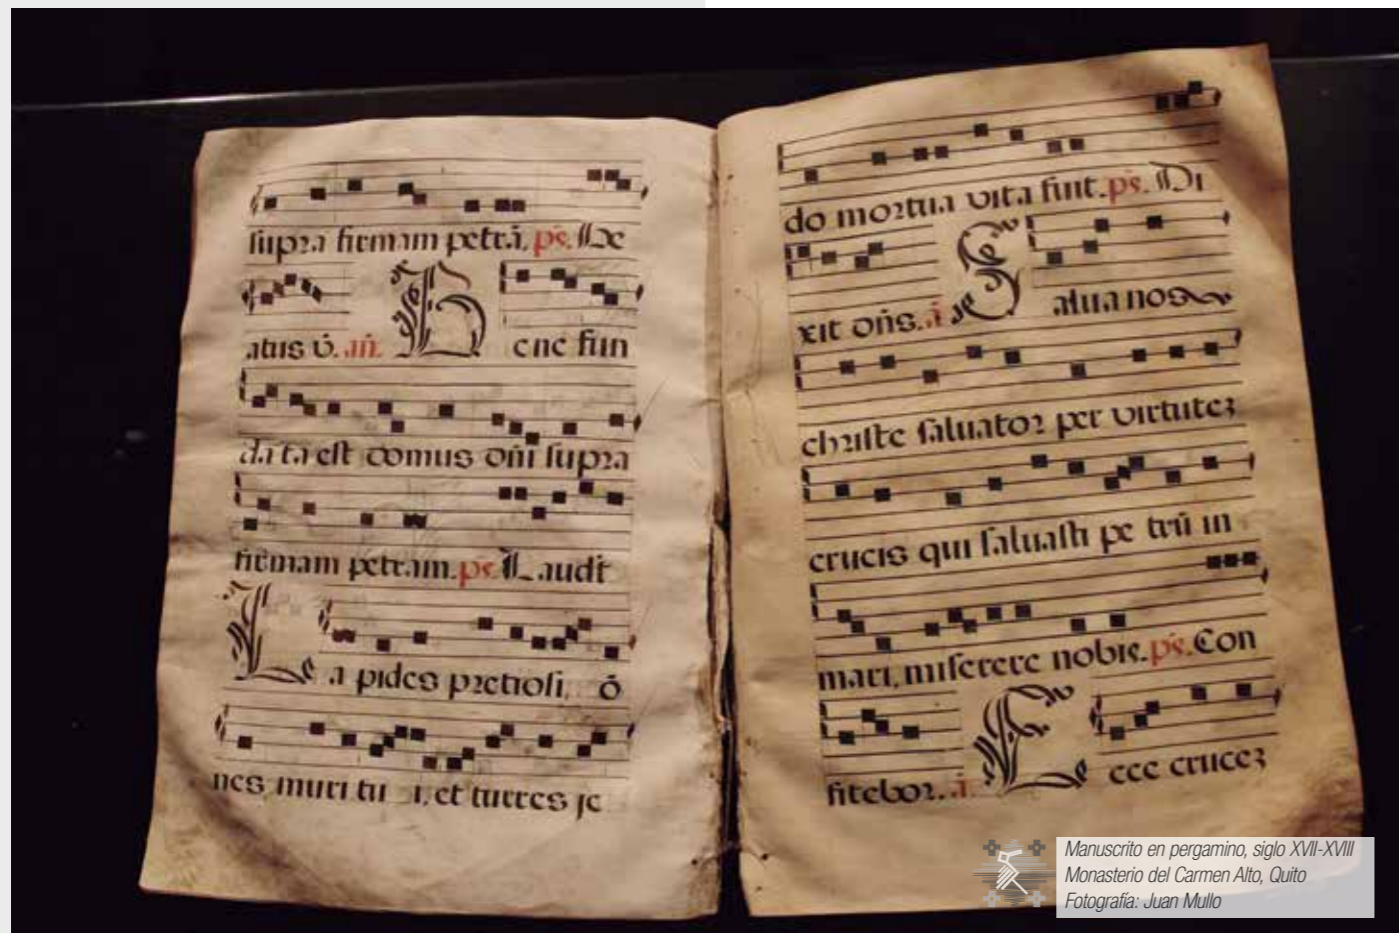 supra firmam petrā. ps. De
atus v̄. an̄. Bene fun
data est domus dn̄i supra
firmam petram. ps. Laudt̄
Lapides pretiosi, ō
nes, muri tui, et turres je
do mortua vita sunt. ps. Di
xit dn̄s. ā Salua nos
christe saluator per virtutez
crucis qui saluasti petrū in
mari, miserere nobis. ps. Con
fitebor. ā Ecce crucez
Manuscrito en pergamino, siglo XVII-XVIII
Monasterio del Carmen Alto, Quito
Fotografía: Juan Mullo